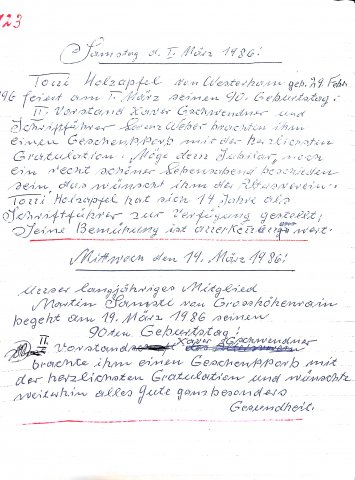 123
Samstag d. I März 1986!
Toni Holzapfel von Westerham geb. 29. Febr.
96 feiert am I. März seinen 90. Geburtstag.
II. Vorstand Xaver Gschwendner und
Schriftführer Lorenz Weber brachten ihm
einen Geschenkkorb mit der herzlichsten
Gratulation. Möge dem Jubilar, noch
ein recht schöner Lebensabend beschieden
sein, das wünscht ihm der Verein.
Toni Holzapfel hat sich 11 Jahre als
Schriftführer zur Verfügung gestellt;
Seine Bemühung ist anerkennungswert.
Mittwoch den 19. März 1986!
Unser langjähriges Mitglied
Martin von Grosshöhenrain
begeht am 19. März 1986 seinen
90ten Geburtstag!
II. Vorstand Xaver Gschwendner
brachte ihm einen Geschenkkorb mit
der herzlichsten Gratulation und wünschte
weiterhin alles Gute ganz besonders
Gesundheit.